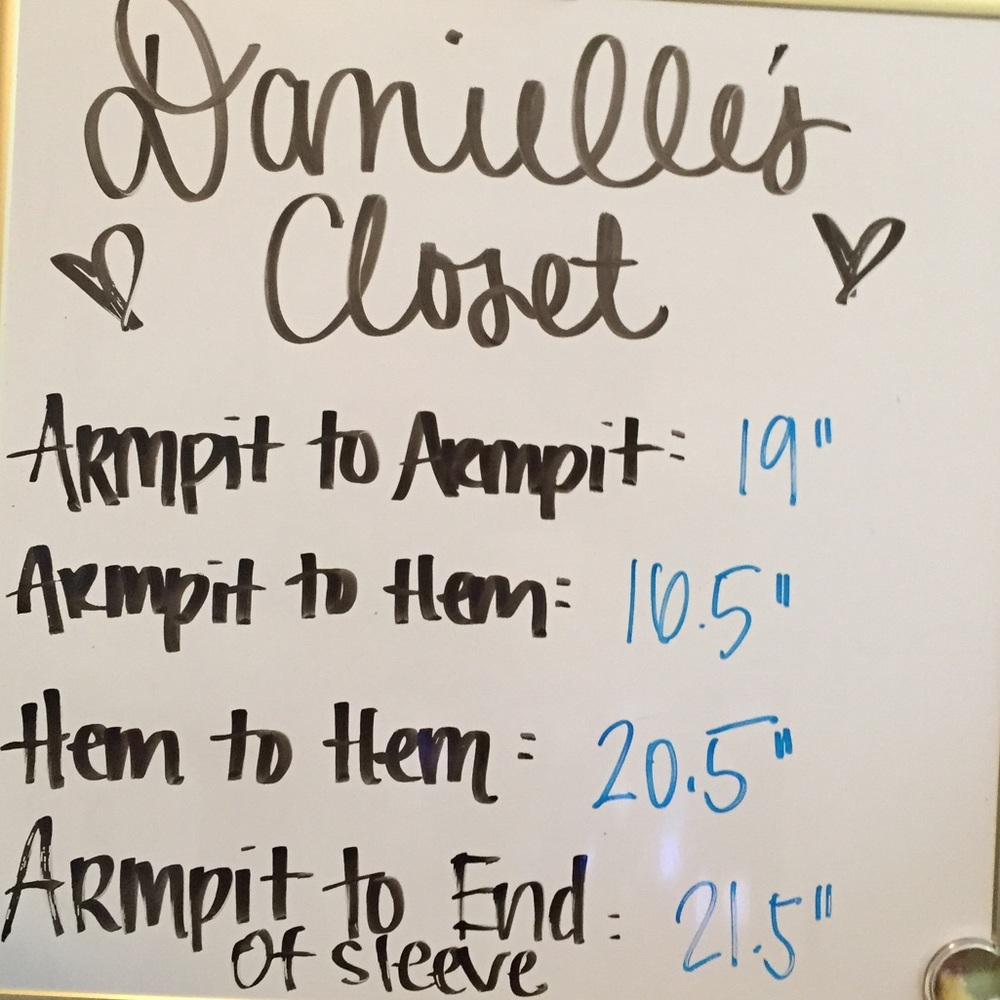 Danielle's
Closet
Armpit to Armpit: 19"
Armpit to Hem: 16.5"
Hem to Hem: 20.5"
Armpit to End : 21.5"
Of sleeve